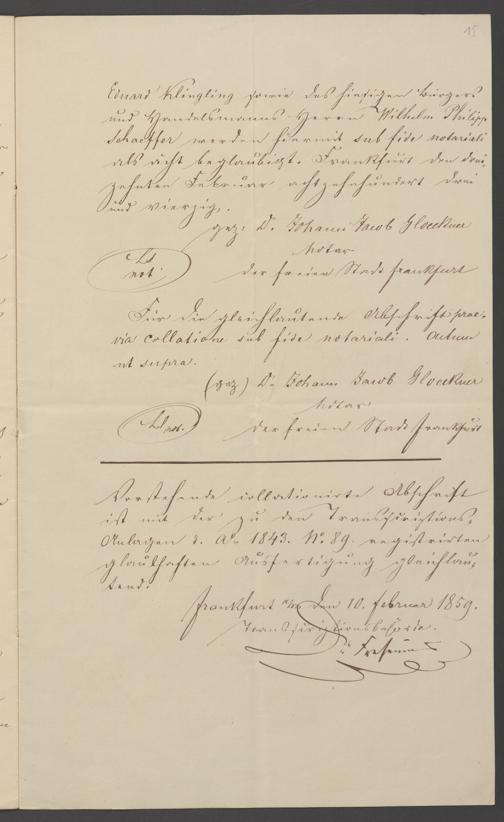 15
Eduard Klingling sowie des hiesigen Bürgers
und Handelsmanns Herrn Wilhelm Philipp
Schaeffer werden hiermit sub fide notariali
als ächt beglaubigt. Frankfurt den drei,
zehnten Februar achtzehnhundert drei
und vierzig.
gez: Dr. Johann Jacob Gloeckner
Notar
der freien Stadt Frankfurt
LS
not.
Für die gleichlautende Abschrift prae,
via collatione sub fide notariali. Actum
ut supra.
(gez) Dr. Johann Jacob Gloeckner
Notar
der freien Stadt Frankfurt
LS not.
Vorstehende collationirte Abschrift
ist mit der zu den Transscriptions,
Anlagen d. Ao 1843. No 89. registrirten
glaubhaften Ausfertigung gleichlau,
tend.
Frankfurt a/m den 10. Februar 1859.
Transscriptionsbehörde.
Dr Fresenius